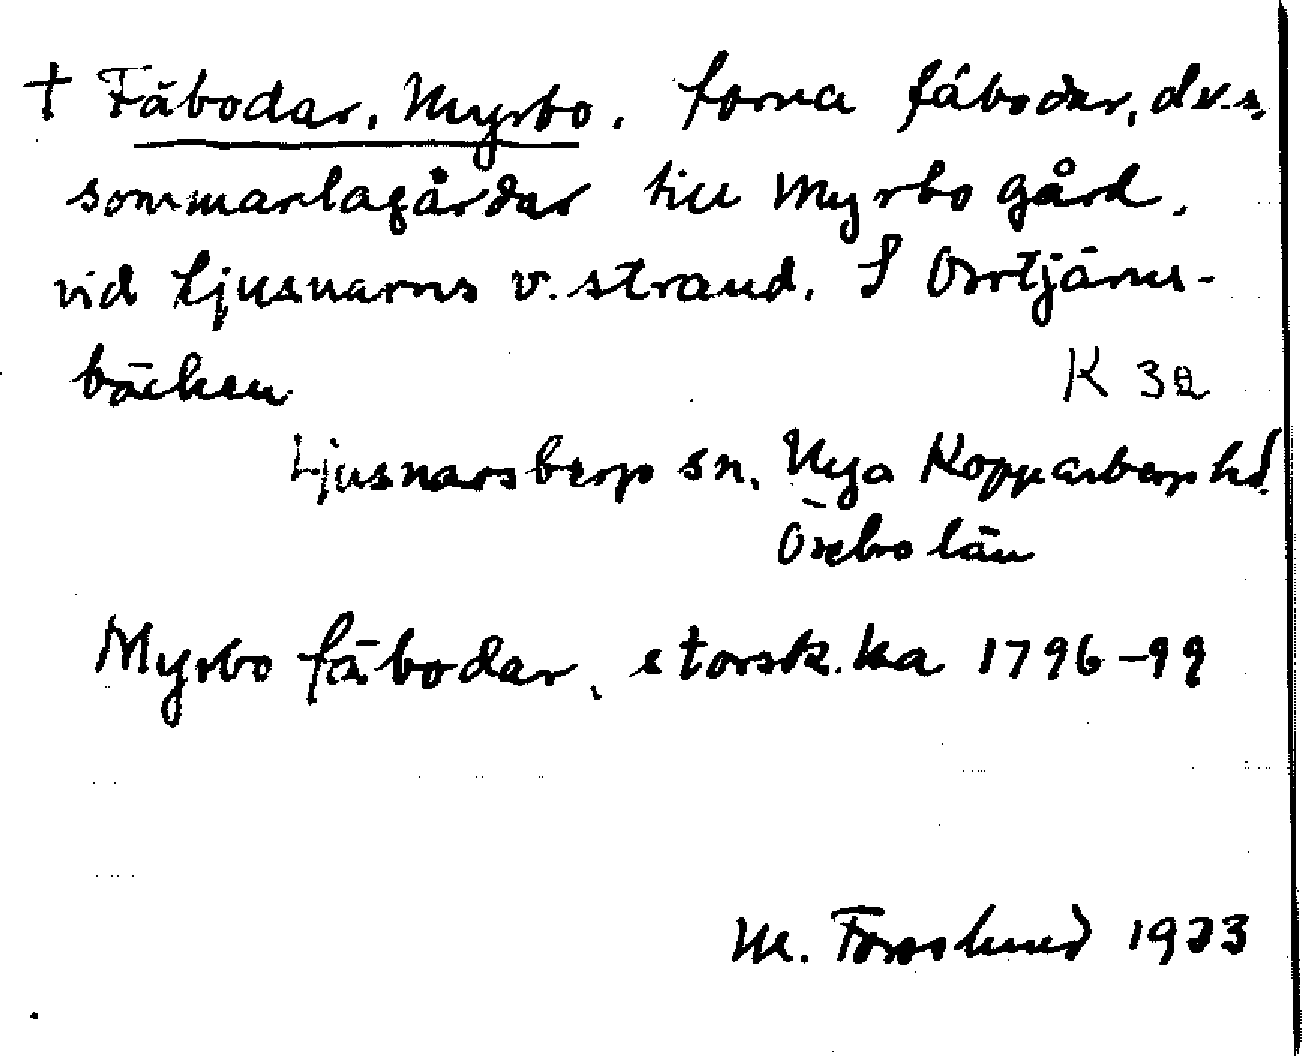 † Fäbodar, Myrbo. forna fäbodar, dv.s.
sommarlagårdar till Myrbo gård.
vid Ljusnarns v. strand. S Orrtjärns-
bäcken
K 32
Ljusnarsberg sn. Nya Kopparberg hd.
Örebro län
Myrbo fäbodar, storsk.ka 1796-99
M. Forslund 1933